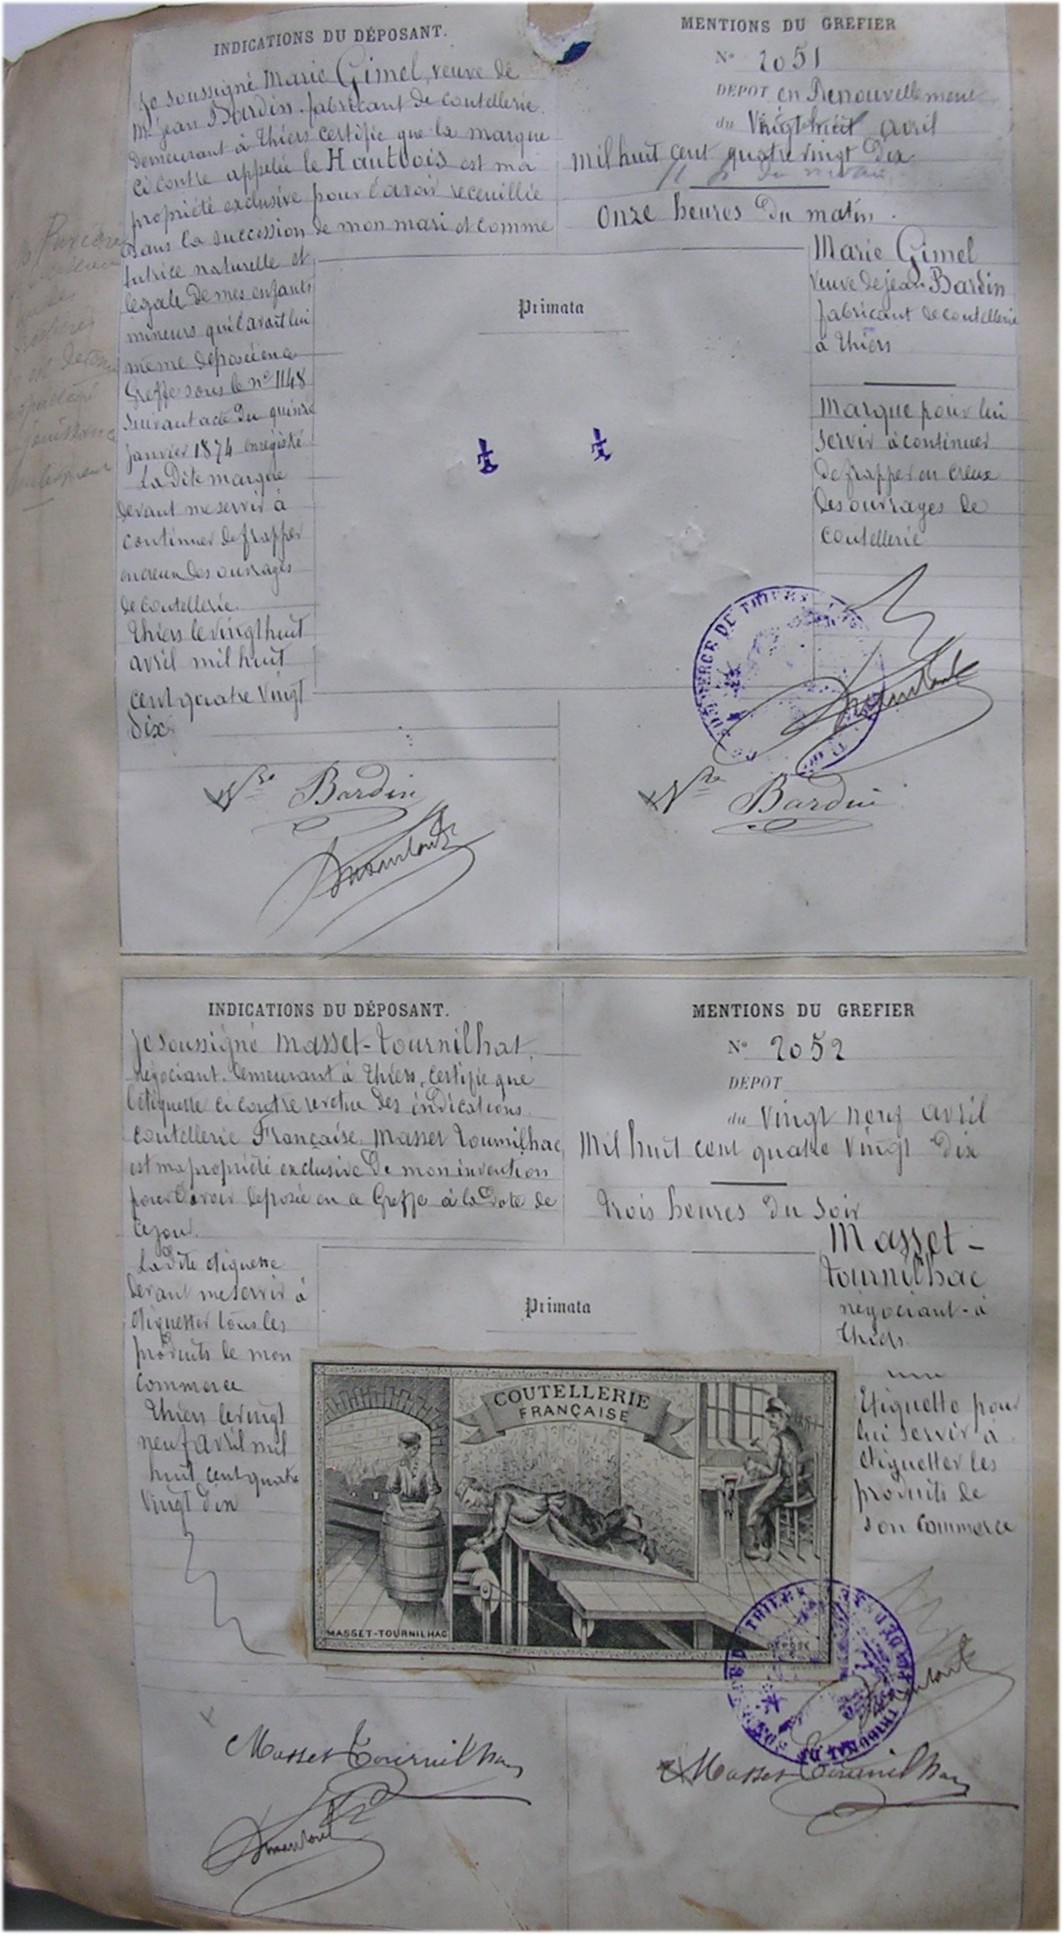 INDICATIONS DU DÉPOSANT.
Je soussigné Marie Gimel, veuve de
Mr jean Bardin fabricant de coutellerie
demeurant à Thiers certifie que la marque
ci contre appelée le Hautbois est ma
propriété exclusive pour l'avoir receuillie
dans la succession de mon mari et comme
tutrice naturelle et
légale de mes enfants
mineurs qu'il avait lui
même déposée en ce
Greffe sous le n° 1148
suivant acte du quinze
janvier 1874 enregistré
La Dite marque
devant me servir à
continuer de frapper
en creux des ouvrages
de coutellerie.
Thiers le vingt huit
avril mil huit
cent quatre vingt
dix.
MENTIONS DU GREFIER
N° 2051
DEPOT en Renouvellement
du Vingt huit avril
mil huit cent quatre vingt dix
onze heures du matin.
Marie Gimel
veuve de jean Bardin
fabricant de coutellerie
à Thiers
Marque pour lui
servir à continuer
de frapper en creux
des ouvrages de
coutellerie
Primata
COMMERCE DE THIERS
Vve Bardin
Vve Bardin
INDICATIONS DU DÉPOSANT.
Je soussigné Masset-Tournilhat,
négociant demeurant à Thiers, certifie que
l'étiquette ci contre revetue des indications
coutellerie Française. Masset Tournilhac,
est ma propriété exclusive de mon invention
pour l'avoir déposée en ce Greffe à la date de
ce jour.
La dite etiquette
devant me servir à
étiquetter tous les
produits de mon
commerce
Thiers le vingt
neuf avril mil
huit cent quatre
vingt dix
MENTIONS DU GREFIER
N° 2052
DEPOT
du vingt neuf avril
Mil huit cent quatre vingt dix
trois heures du soir
Masset-
Tournilhac
négociant à
Thiers.
une
Etiquette pour
lui servir à
étiquetter les
produits de
son commerce
Primata
COUTELLERIE
FRANÇAISE
MASSET-TOURNILHAC
DEPOSE
TRIBUNAL DE
Masset Tournilhac
Masset Tournilhac